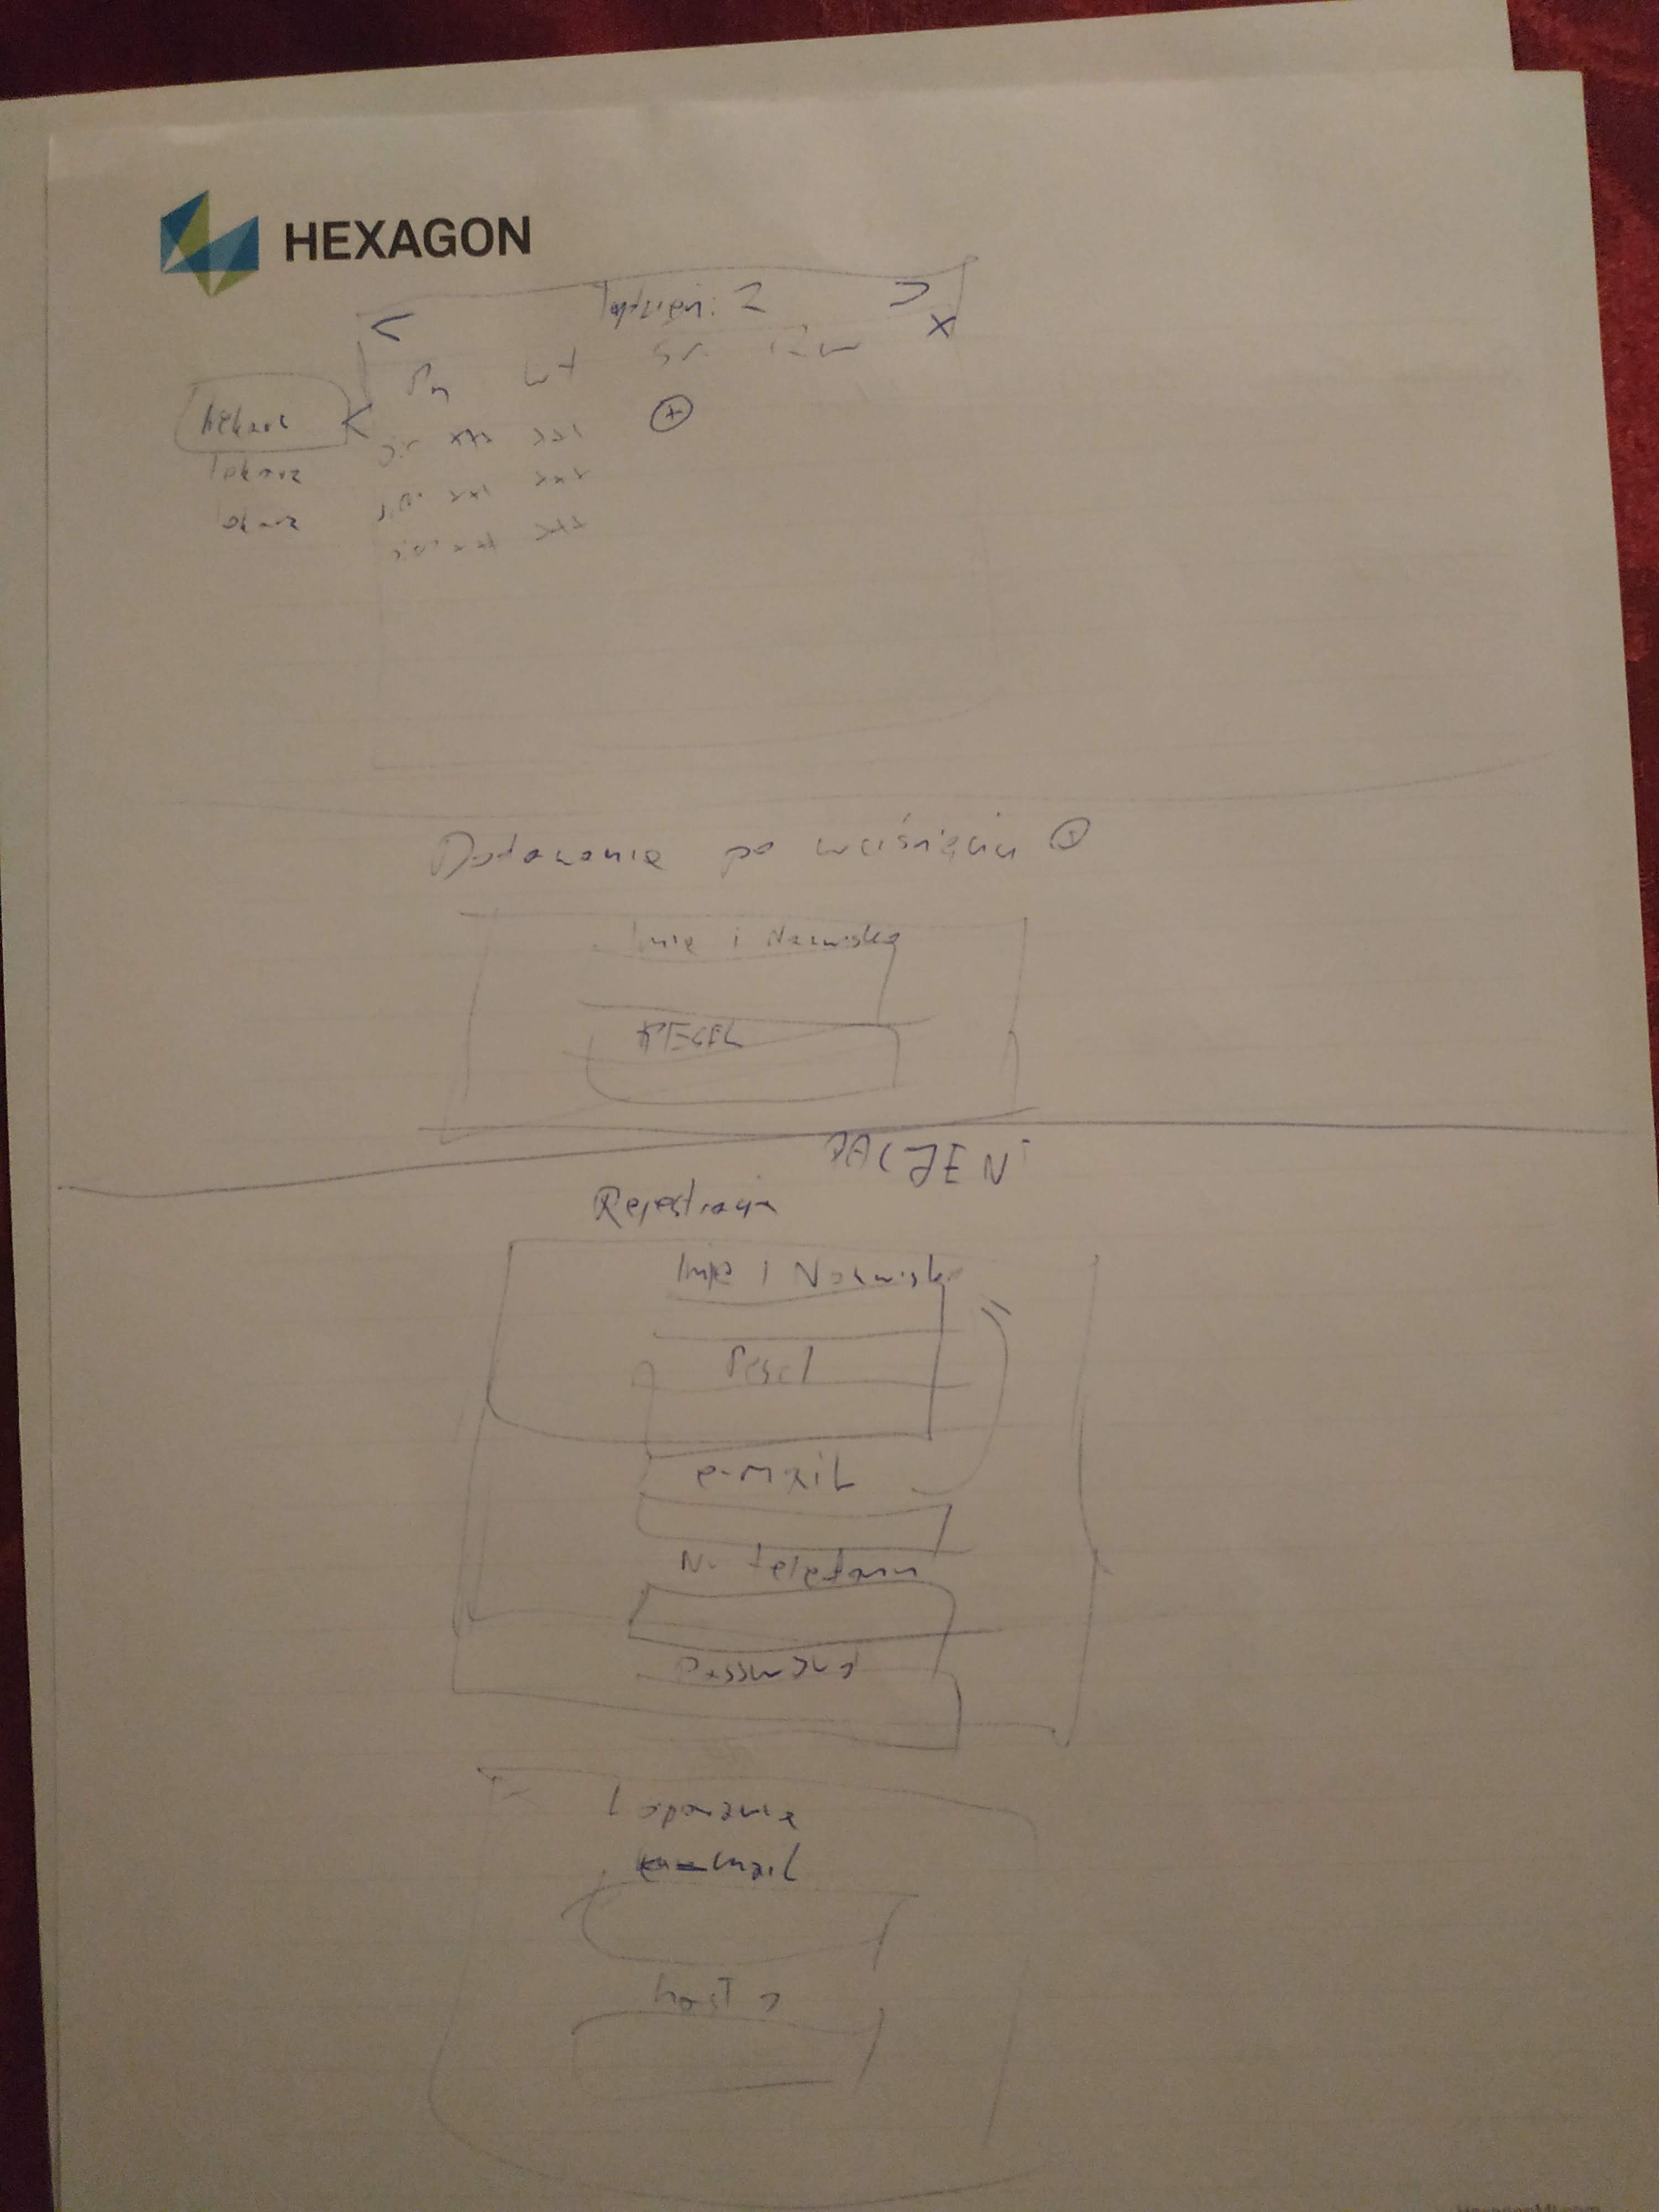 HEXAGON
< Tydzień: 2 >
x
Pn wt śr czw
lekarz < +
lekarz
lekarz
Dodawanie po wciśnięciu +
Imię i Nazwisko
PESEL
PACJENT
Rejestracja
Imię i Nazwisko
Pesel
e-mail
Nr telefonu
Password
Logowanie
e-mail
hasło